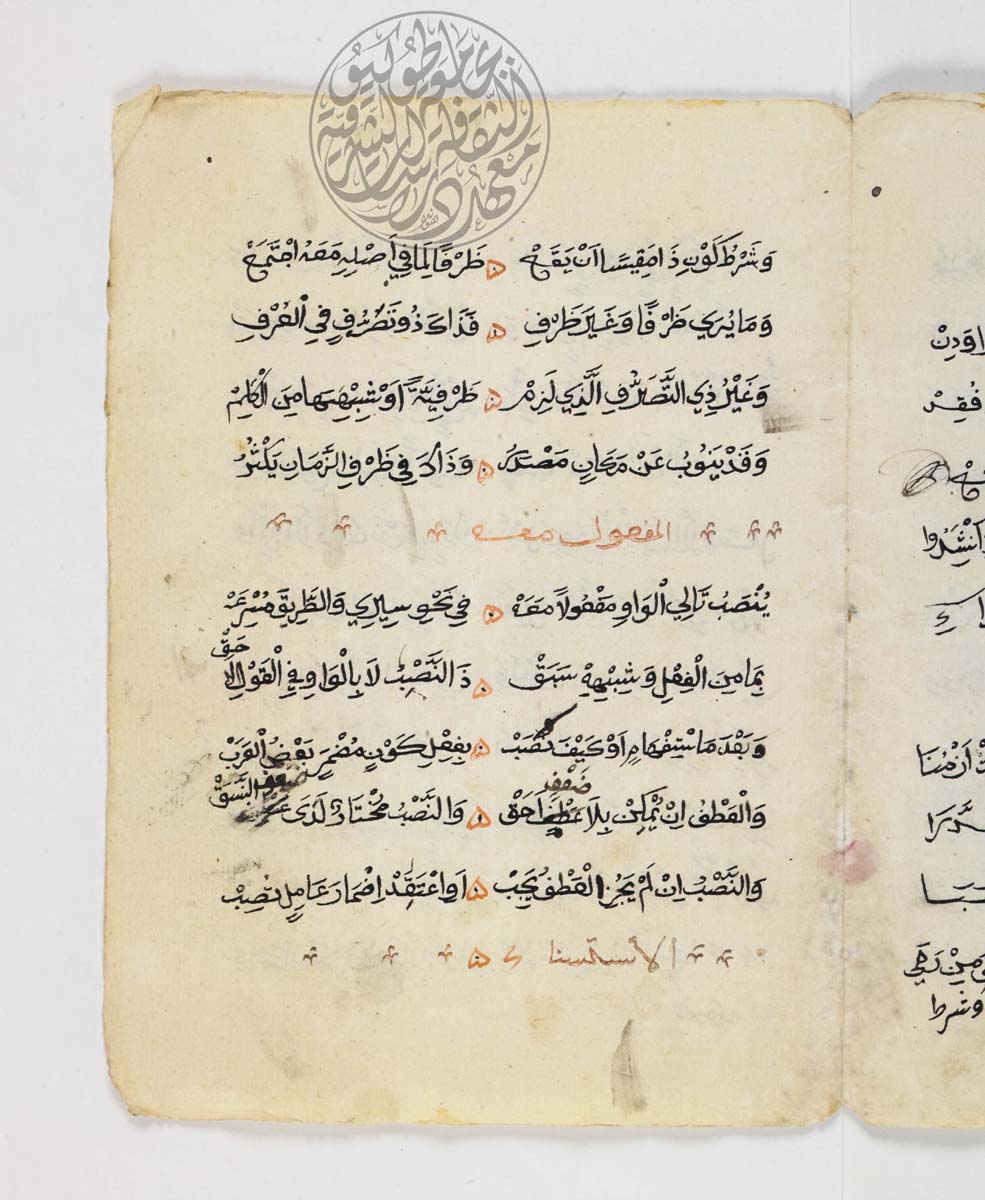 وَشَرْطُ كَوْنِ ذَا مَقِيسًا اَنْ يَقَعْ ه ظَرْفًا لِمَا فِي اَصْلِهِ مَعَهُ اجْتَمَعْ
وَمَا يُرَي ظَرْفًا وَغَيْرَ ظَرْفِ ه فَذَاكَ ذُو تَصَرُّفٍ فِي الْعُرْفِ
وَغَيْرُ ذِي التَّصَرُّفِ الَّذِي لَزِمْ ه ظَرْفِيَّةً اَوْ شِبْهِهَا مِنَ الْكَلِمْ
وَقَدْ يَنُوبُ عَنْ مَكَانٍ مَصْدَرُ ه وَذَاكَ فِي ظَرْفِ الزَّمَانِ يَكْثُرُ
المفعول معه
يُنْصَبُ تَالِي الْوَاوِ مَفْعُولًا مَعَهْ ه فِي نَحْوِ سِيرِي وَالطَّرِيقَ مُسْرِعَهْ
بِمَا مِنَ الْفِعْلِ وَشِبْهِهِ سَبَقْ ه ذَ النَّصْبُ لَا بِالْوَاوِ فِي الْقَوْلِ الا حَقْ
وَبَعْدَ مَا سْتِفْهَامٍ اَوْ كَيْفَ نَصَبْ ه بِفِعْلِ كَوْنٍ مُضْمَرٍ بَعْضُ الْعَرَبْ
وَالْعَطْفُ اِنْ يُمْكِنْ بِلَا ضَعْفٍ اَحَقْ ه وَالنَّصْبُ مُخْتَارٌ لَدَى ضعف النَّسَقْ
وَالنَّصْبُ اِنْ لَمْ يَجُزِ الْعَطْفُ يَجِبْ ه اَوِ اعْتَقِدْ اِضْمَارَ عَامِلٍ تُصِبْ
الأستسنا ه
اوَدِنْ
فُقِدْ
اَنْشَدُوا
اَزْمُنَا
مِنْ
وشرط
معهد دراسات الثقافة الشرقية بجامعة طوكيو